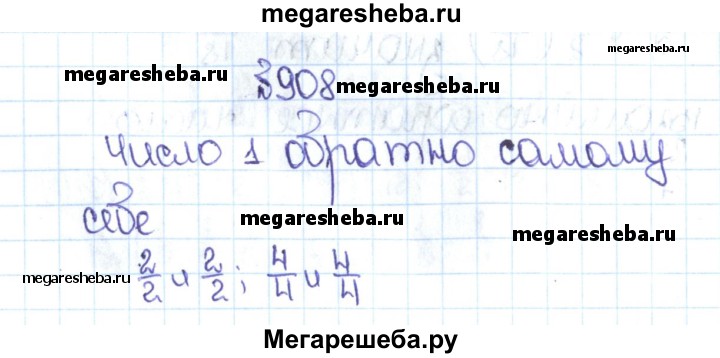 megaresheba.ru
megaresheba.ru
№908 megaresheba.ru
число 1 обратно самому
себе
megaresheba.ru
megaresheba.ru
megaresheba.ru 2/2 и 2/2; 4/4 и 4/4
Мегарешеба.ру